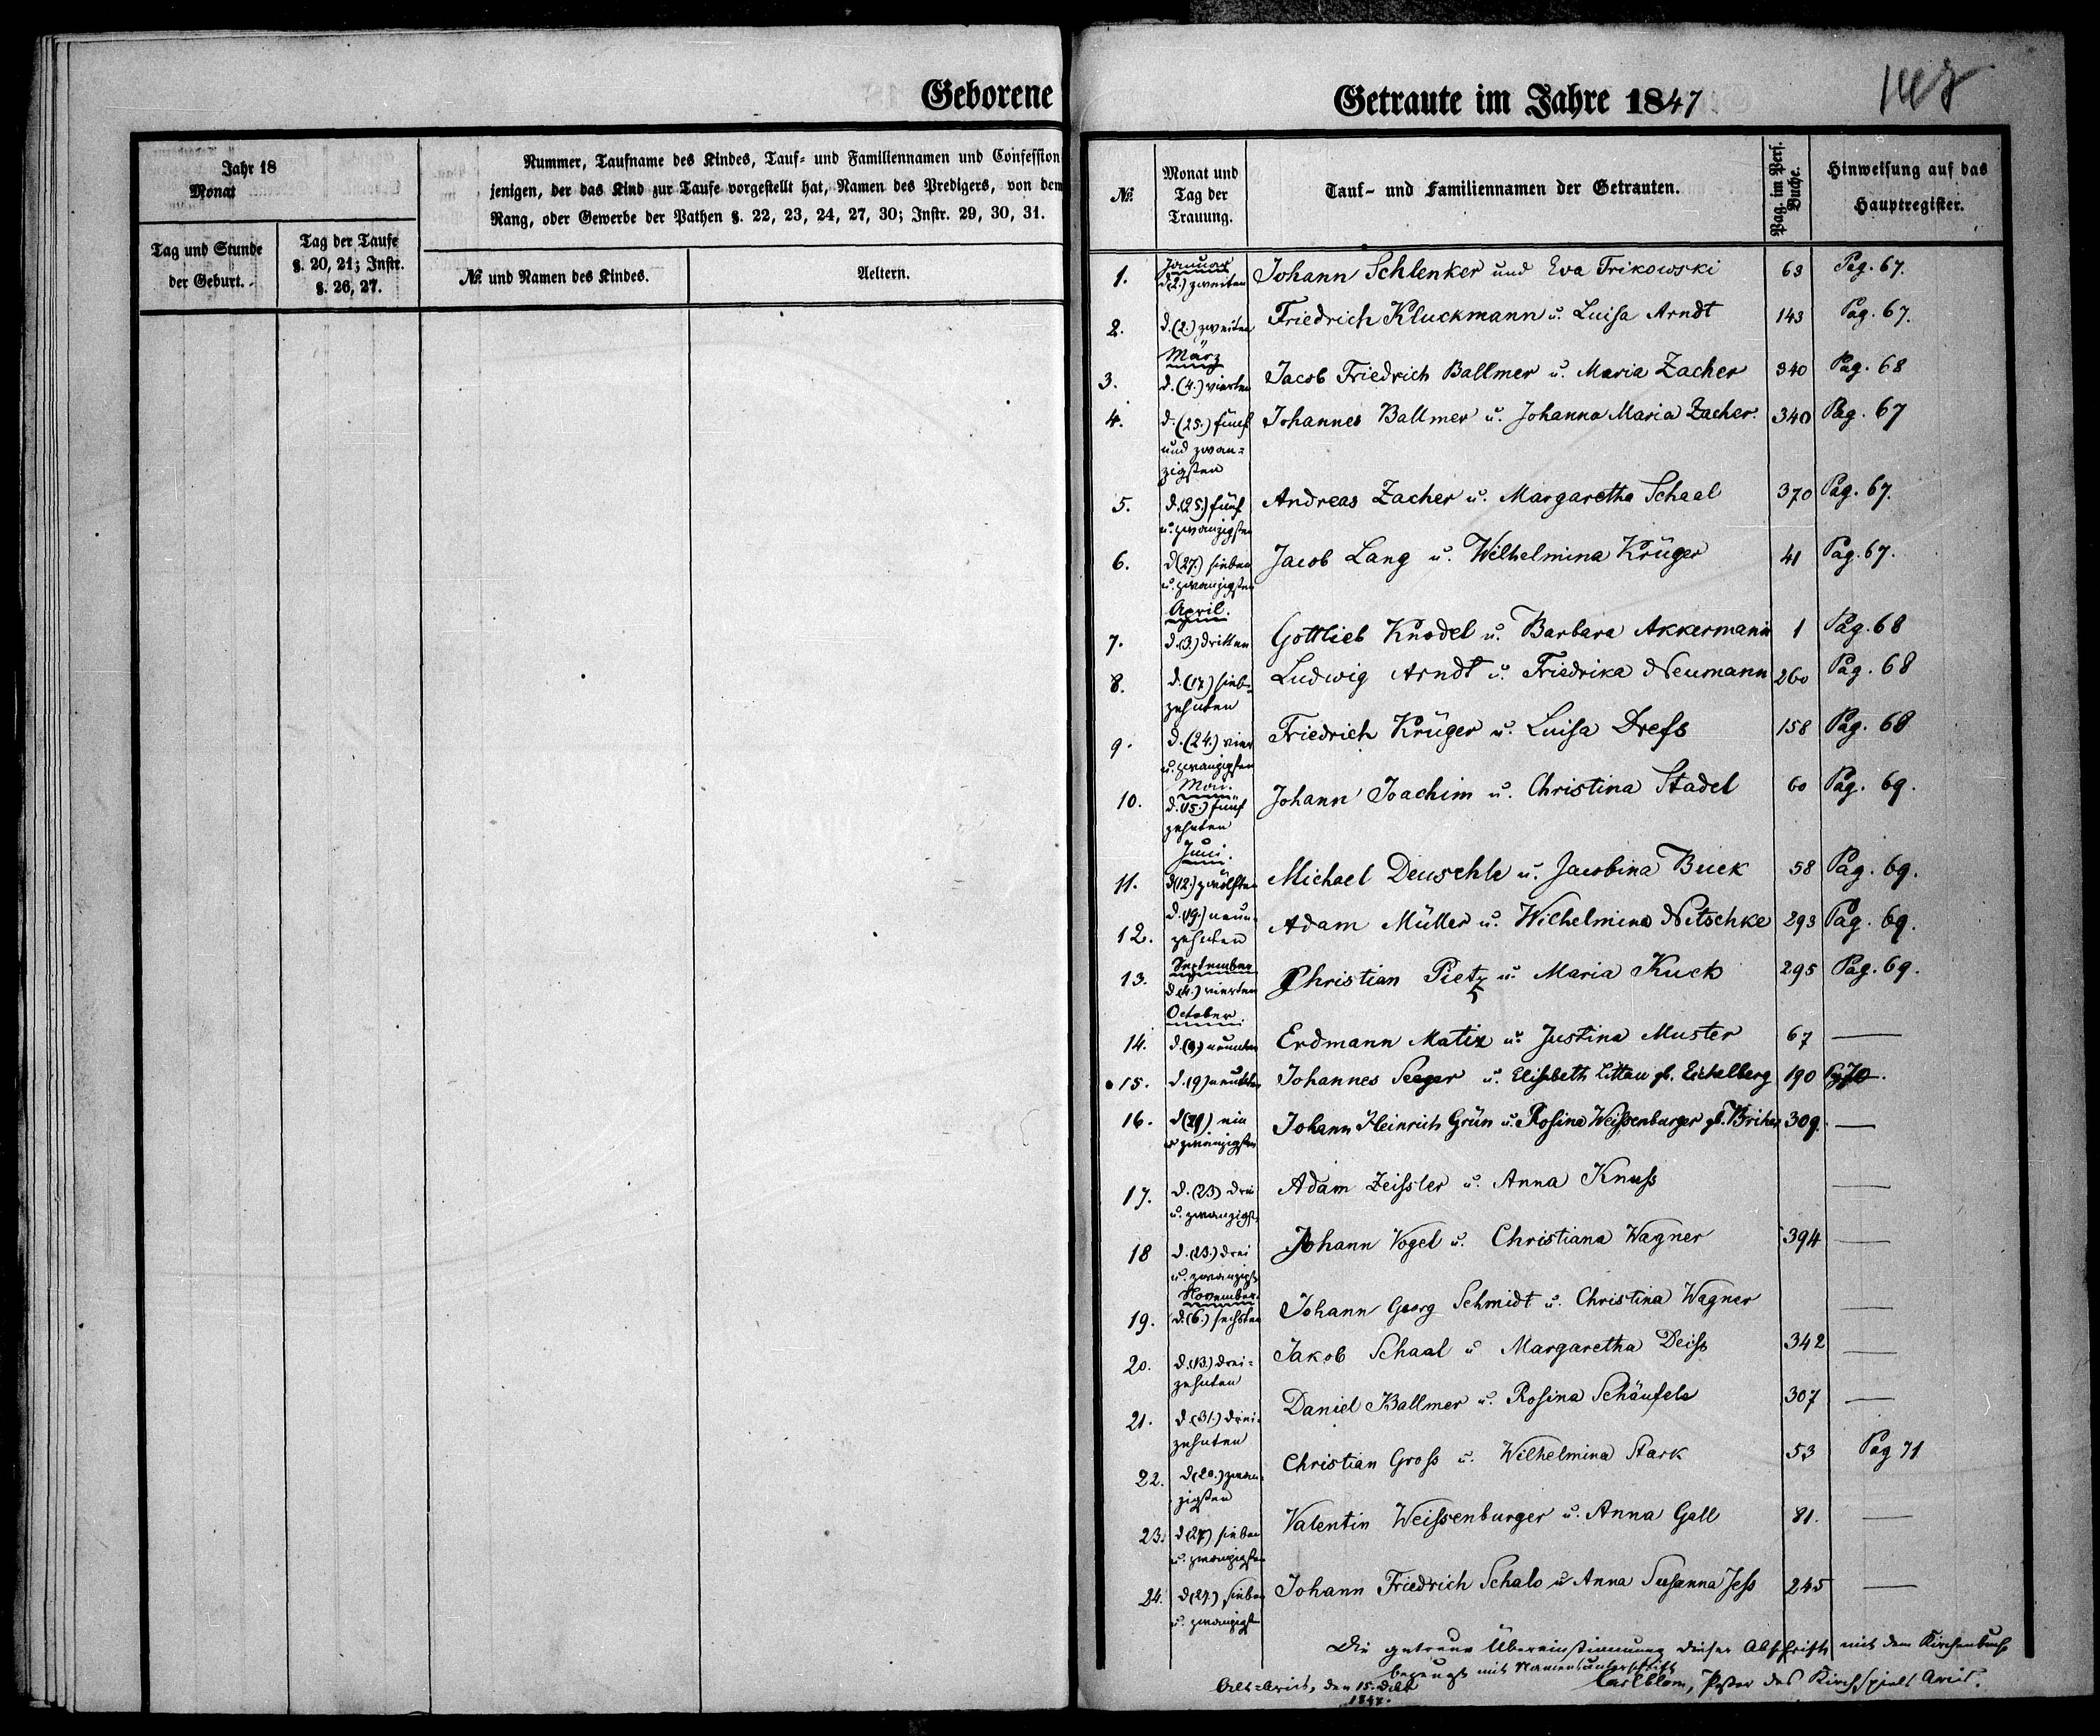 Geborene
Jahr 18
Monat
Nummer, Taufname des Kindes, Tauf- und Familiennamen und Confession
jenigen, der das Kind zur Taufe vorgestellt hat, Namen des Predigers, von dem
Rang, oder Gewerbe der Pathen §. 22, 23, 24, 27, 30; Instr. 29, 30, 31.
Tag und Stunde
der Geburt.
Tag der Taufe
§. 20, 21; Instr.
§. 26, 27.
№ und Namen des Kindes.
Aeltern.
Getraute im Jahre 1847
№
Monat und
Tag der
Trauung.
Tauf- und Familiennamen der Getrauten.
Pag. im Pers.
Buche.
Hinweisung auf das
Hauptregister.
Januar
1. d (2.) zweiten Johann Schlenker und Eva Trikowski 63 Pag. 67.
2. d. (2.) zweiten Friedrich Kluckmann u. Luisa Arndt 143 Pag. 67.
März
3. d. (4.) vierten Jacob Friedrich Ballmer u. Maria Zacher 340 Pag. 68
4. d. (25.) fünf Johannes Ballmer u. Johanna Maria Zacher. 340 Pag. 67
und zwan=
zigsten
5. d. (25.) fünf Andreas Zacher u. Margaretha Schaal 370 Pag. 67.
u. zwanzigsten
6. d (27.) sieben Jacob Lang u. Wilhelmina Krüger 41 Pag. 67.
u. zwanzigsten
April.
7. d. (3.) dritten Gottlieb Knodel u. Barbara Akkermann 1 Pag. 68
8. d. (17.) sieb= Ludwig Arndt u. Friedrika Neumann 260 Pag. 68
zehnten
9. d. (24.) vier Friedrich Krüger u. Luisa Drefs 158 Pag. 68
u. zwanzigsten
Mai.
10. d. (15.) fünf Johann Joachim u. Christina Stadel 60 Pag. 69.
zehnten
Juni.
11. d (12.) zwölften Michael Deuschle u. Jacobina Buck 58 Pag. 69.
d. (19.) neun=
12. zehnten Adam Müller u. Wilhelmina Nitschke 293 Pag. 69.
September
13. d (4.) vierten Christian Pietz u. Maria Kuck 295 Pag. 69.
October
14. d. (9.) neunten Erdmann Matiz u. Justina Muster 67 —
15. d. (9) neunten Johannes Seeger u. Elisabeth Littau gb. Eichelberg 190 Pg 70.
16. d (21) ein Johann Heinrich Grün u. Rosina Weissenburger gb. 309. —
u zwanzigsten
17. d. (23) drei Adam Zeissler u. Anna Knuss —
u. zwanzigst.
18 d. (23.) drei Johann Vogel u. Christiana Wagner 394 —
u. zwanzigst.
November.
19. d. (6.) sechsten Johann Georg Schmidt u. Christina Wagner —
20. d. (13.) drei= Jakob Schaal u Margaretha Deiss 342 —
zehnten
21. d (31.) drei= Daniel Ballmer u. Rosina Schäufele 307 —
zehnten
22. d (20.) zwan= Christian Gross u. Wilhelmina Stark 53 Pag 71
zigsten
23. d (27) sieben Valentin Weissenburger u. Anna Gall 81. —
u. zwanzigsten
24. d (27.) sieben Johann Friedrich Schalo u Anna Susanna Jess 245 —
u. zwanzigst
Die getreue Übereinstimmung dieser Abschrift mit dem Kirchenbuche
bezeugt mit Namensunterschrift
den 15. Carlblom, Pastor des Kirchspiels Arcis.
1847.